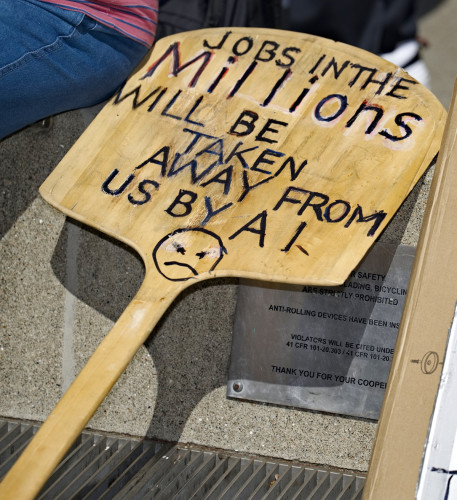 JOBS IN THE
Millions
WILL BE
TAKEN
AWAY FROM
US BY A I
SAFETY
BICYCLING
PROHIBITED
ANTI-ROLLING DEVICES HAVE BEEN
VIOLATORS WILL BE CITED UNDER
41 CFR
THANK YOU FOR YOUR